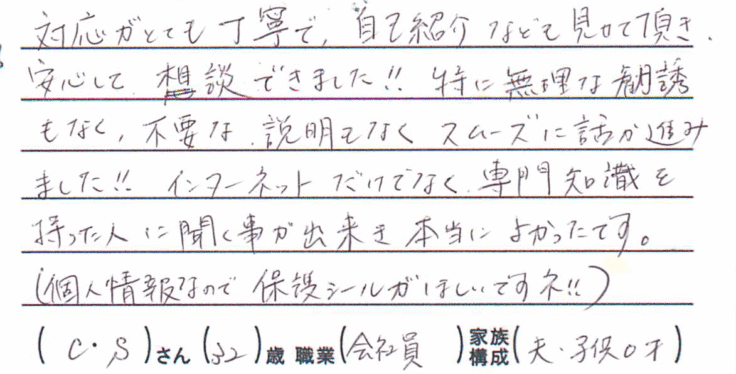 対応がとても丁寧で、自己紹介なども見せて頂き、
安心して想談できました!! 特に無理な勧誘
もなく、不要な説明もなくスムーズに話が進み
ました!! インターネットだけでなく、専門知識を
持った人に聞く事が出来き本当によかったです。
(個人情報なので保護シールがほしいですネ!!)
(C・S)さん(32)歳 職業(会社員)家族構成(夫・子供0才)